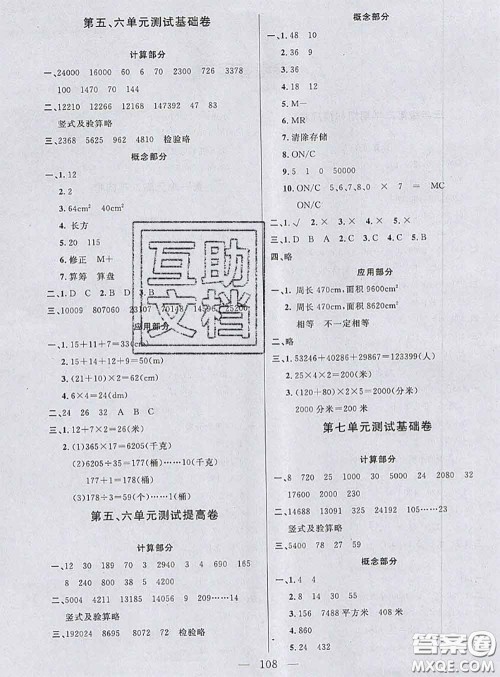 第五、六单元测试基础卷
计算部分
一、24000 16000 60 6 700 2300 726 3378
100 1470 70 144
二、12210 12216 22348 14352 47 83
竖式及验算略
三、2368 5625 962 4810 检验略
概念部分
一、1.12
2.2
3.64cm² 40cm²
4.长方
5.20 115
6.修正 M+
7.算筹 算盘
二、1.D C 2.B D 3.B D
三、10009 807060 23107 70148 14596 25200
应用部分
一、1.15+11+7=33(cm)
2.15+14+12+9=50(m)
3.(12+15)×2=54(cm)
4.6×4=24(dm)
二、24 26 32 A B C
三、1.12+7×2=26
2.(1)365×17=6205(千克)
(2)6205÷35=177(桶)……10(千克)
177+1=178(桶)
(3)178÷3=59(个)……1(桶)
第五、六单元测试提高卷
计算部分
一、12 30 189 70 3 2940 3 4 690 165
8 240 832 4242
二、5004 4711 20202 206 190……14
竖式及验算略
三、192024 8695 8072 72 检验略
概念部分
一、1.48 10
2.8
3.36
4.18 12
5.M−
6.MR
7.清除存储
8.ON/C
9.5 1 0 50000
10.ON/C 5,6,7,8 × 7 = MC
ON/C
二、1.√ 2.× 3.× 4.× 5.×
三、1.D B A 2.C 3.A
四、略
应用部分
一、1.周长470cm,面积9600cm²
2.周长470cm,面积8620cm²
相等 不一定相等
二、略
三、1.53246+40286+29867=123399(人)
2.(75+25)×2=200(米)
3.(120+80)×5×2=2000(米)
2000米=2000米
第七单元测试基础卷
计算部分
一、8 720 25 1000 30 50 24 2080 32
17600 2000 230
二、14688 13091 107 64……26
竖式及验算略
三、5400 78 27 59
概念部分
一、1.4 4
2.12
3.1056 748平方米 408米
4.12
5.860
108
互助文档
答案圈
MXQE.COM